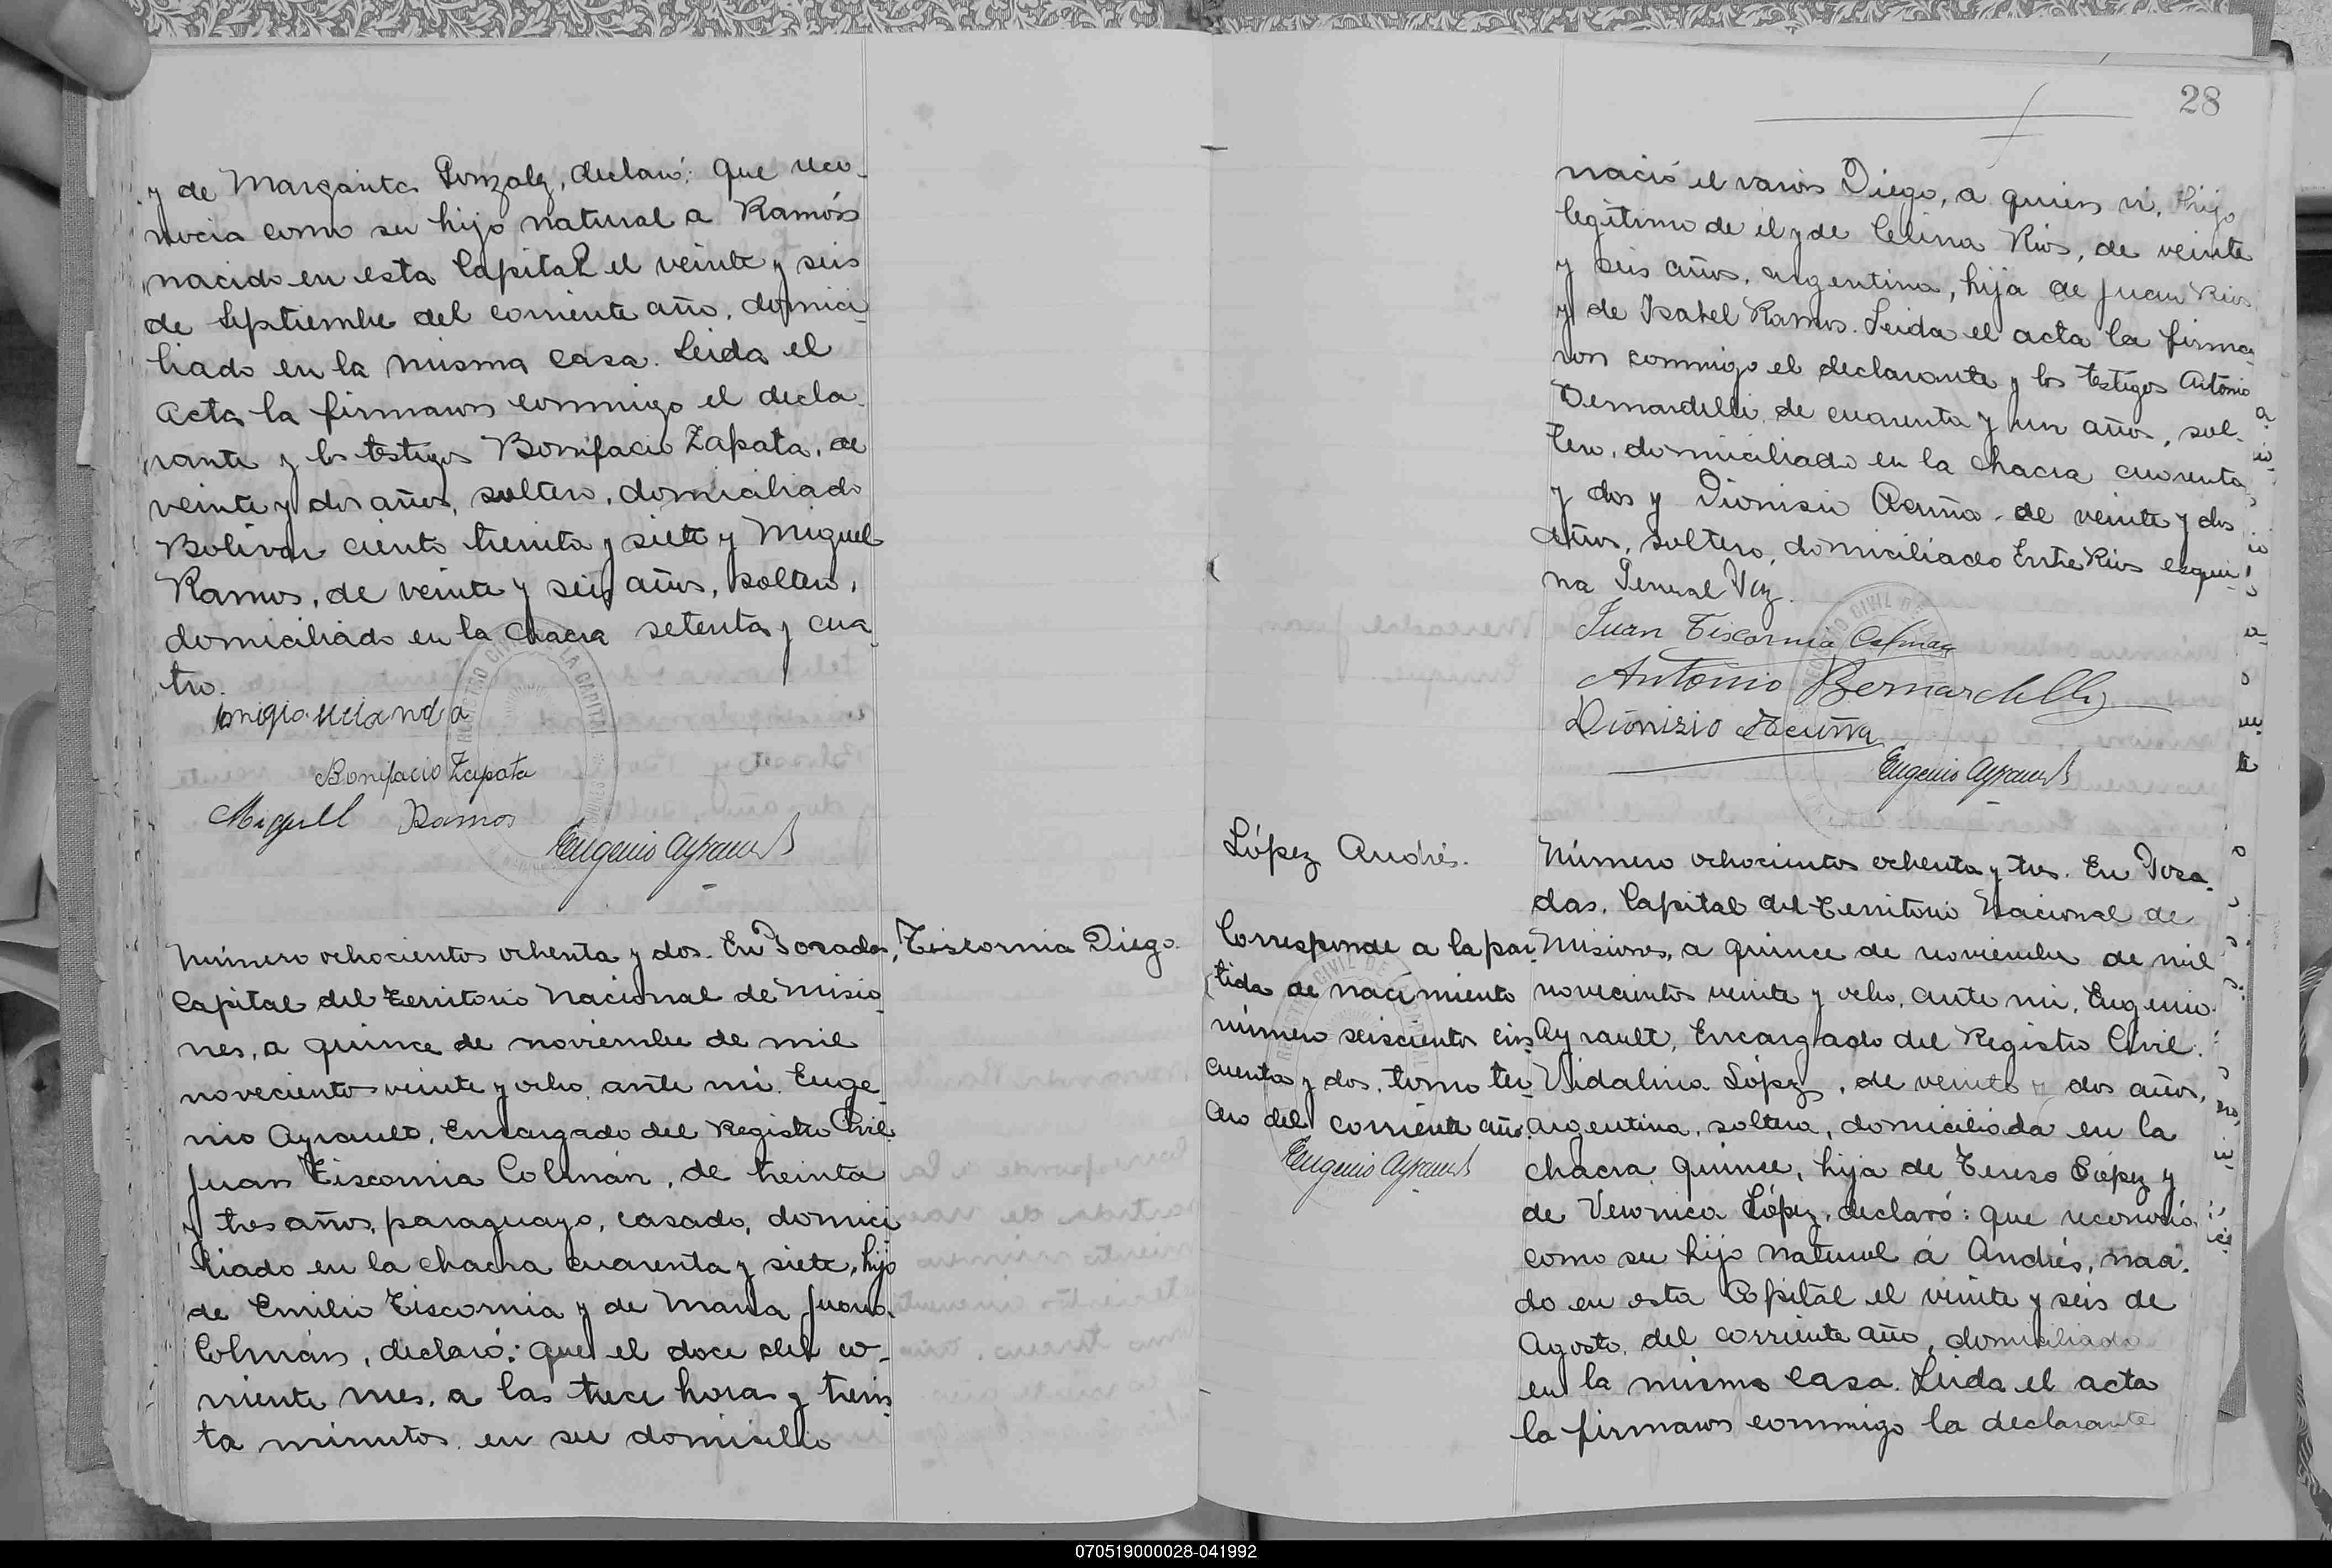 y de Margarita Gonzalez, declaró: que reco-
nocia como su hijo natural a Ramón
nacido en esta Capital el veinte y seis
de Septiembre del corriente año, domici-
liado en la misma casa. Leida el
acta la firmaron conmigo el decla-
rante y los testigos Bonifacio Zapata, de
veinte y dos años, soltero, domiciliado
Bolivar ciento treinta y siete y Miguel
Ramos, de veinte y seis años, soltero,
domiciliado en la chacra setenta y cua-
tro.
Bonifacio Zapata
Miguel Ramos
Eugenio Ayrault
Número ochocientos ochenta y dos. En Posadas,
Capital del Territorio Nacional de Misio-
nes, a quince de noviembre de mil
novecientos veinte y ocho, ante mi, Euge-
nio Ayrault, Encargado del Registro Civil
Juan Tiscornia Colmán, de treinta
y tres años, paraguayo, casado, domici-
liado en la chacra cuarenta y siete, hijo
de Emilio Tiscornia y de Maria Juana
Colmán, declaró: que el doce del co-
rriente mes, a las trece horas y trein-
ta minutos en su domicilio
Tiscornia Diego.
28
nació el varón Diego, a quien ví, hijo
legítimo de él y de Celina Rios, de veinte
y seis años, argentina, hija de Juan Rios
y de Isabel Ramos. Leida el acta la firma-
ron conmigo el declarante y los testigos Antonio
Bernardelli, de cuarenta y un años, sol-
tero, domiciliado en la chacra cuarenta
y dos y Dionisio Acuña, de veinte y dos
años, soltero, domiciliado Entre Rios esqui-
na General Paz.
Juan Tiscornia Colman
Antonio Bernardelli
Dionisio Acuña
Eugenio Ayrault
López Andrés.
Corresponde a la par-
tida de nacimiento
número seiscientos cin-
cuenta y dos, tomo ter-
cero del corriente año.
Eugenio Ayrault
Número ochocientos ochenta y tres. En Posa-
das, Capital del Territorio Nacional de
Misiones, a quince de noviembre de mil
novecientos veinte y ocho, ante mi, Eugenio
Ayrault, Encargado del Registro Civil.
Vidalina López, de veinte y dos años,
argentina, soltera, domiciliada en la
chacra quince, hija de Tereso López y
de Veronica López, declaró: que reconocia
como su hijo natural á Andrés, naci-
do en esta Capital el veinte y seis de
Agosto, del corriente año, domiciliado
en la misma casa. Leida el acta
la firmaron conmigo la declarante
070519000028-041992